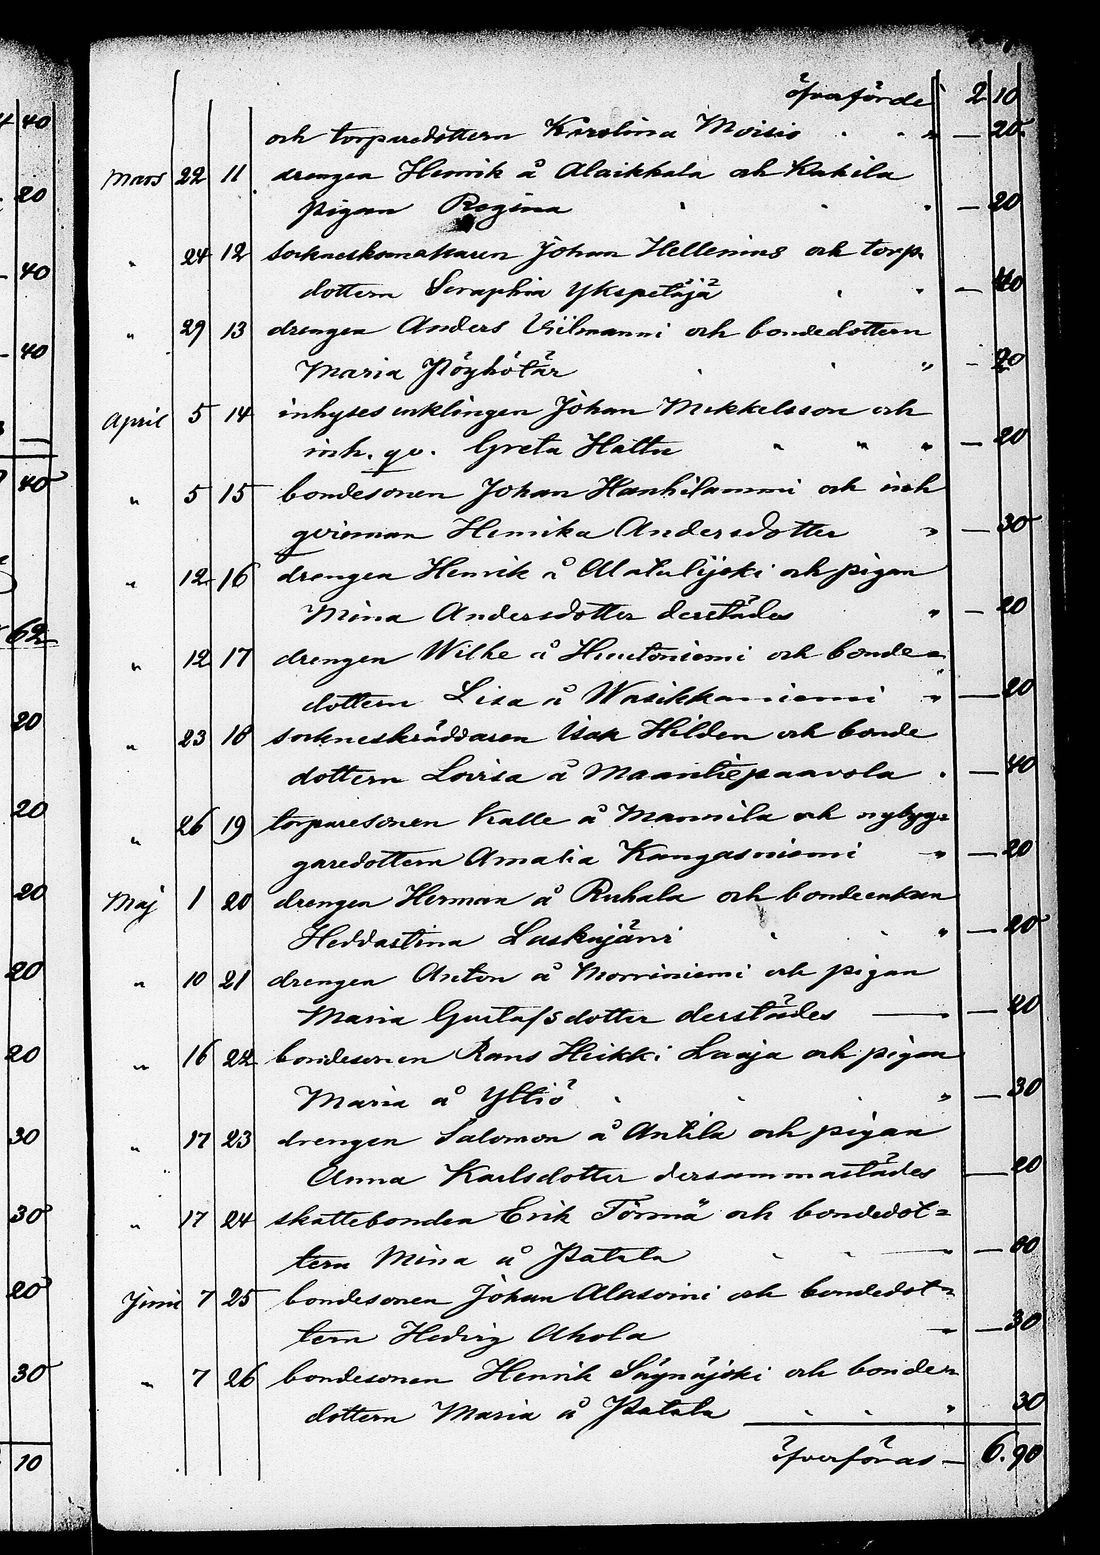 öfverförde 2 10
och torparedottern Karolina Moisio " — 20
Mars 22 11 drengen Henrik å Alaikkala och Kakila
pigan Regina " — 20
" 24 12 sockneskomakaren Johan Hellenius och torp.
dottern Seraphia Ykspetäjä " — 40
" 29 13 drengen Anders Viilmanni och bondedottern
Maria Pöyhötär " — 20
April 5 14 inhyses enklingen Johan Mickelsson och
inh. qv. Greta Hattu " " " — 20
" 5 15 bondesonen Johan Hanhilammi och inh
qvinnan Henrika Andersdotter " — 30
" 12 16 drengen Henrik å Alatulijoki och pigan
Mina Andersdotter derstädes " — 20
" 12 17 drengen Wilhe å Huutoniemi och bonde=
dottern Lisa å Wasikkaniemi " — 20
" 23 18 sockneskräddaren Isak Hilden och bonde
dottern Lovisa å Maantiepaavola " — 40
" 26 19 torparesonen Kalle å Mannila och nybyg=
garedottern Amalia Kangasniemi " — 20
Maj 1 20 drengen Herman å Ruhala och bondeenkan
Heddastina Laskujärvi " — 20
" 10 21 drengen Anton å Morriniemi och pigan
Maria Gustafsdotter derstädes — " — 20
" 16 22 bondesonen Rans Heikki Laaja och pigan
Maria å Yliiö " — 30
" 17 23 drengen Salomon å Antila och pigan
Anna Karlsdotter dersammastädes — 20
" 17 24 skattebonden Erik Törmä och bondedot=
tern Mina å Patala " — 60
Juni 7 25 bondesonen Johan Alasoini och bondedot=
tern Hedvig Ahola " — 30
" 7 26 bondesonen Henrik Säynäjoki och bonde=
dottern Maria å Patala " 30
öfverföras — 6.90